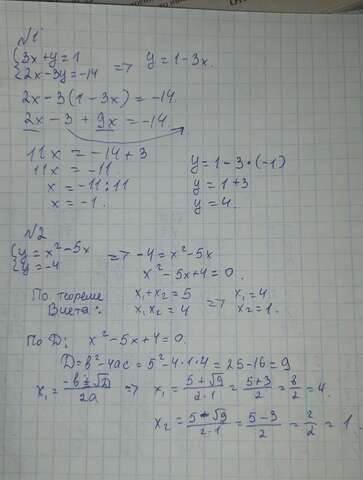 №1
{3x+y=1 => y=1-3x.
{2x-3y=-14
2x-3(1-3x)=-14
2x-3+9x=-14
11x=-14+3
11x=-11
x=-11:11
x=-1.
y=1-3·(-1)
y=1+3
y=4.
№2
{y=x²-5x => -4=x²-5x
{y=-4
x²-5x+4=0.
По теореме Виета: x₁+x₂=5 => x₁=4
x₁x₂=4 x₂=1.
По D: x²-5x+4=0.
D=b²-4ac=5²-4·1·4=25-16=9
x₁=(-b±√D)/2a => x₁=(5+√9)/(2·1)=(5+3)/2=8/2=4.
x₂=(5-√9)/(2·1)=(5-3)/2=2/2=1.